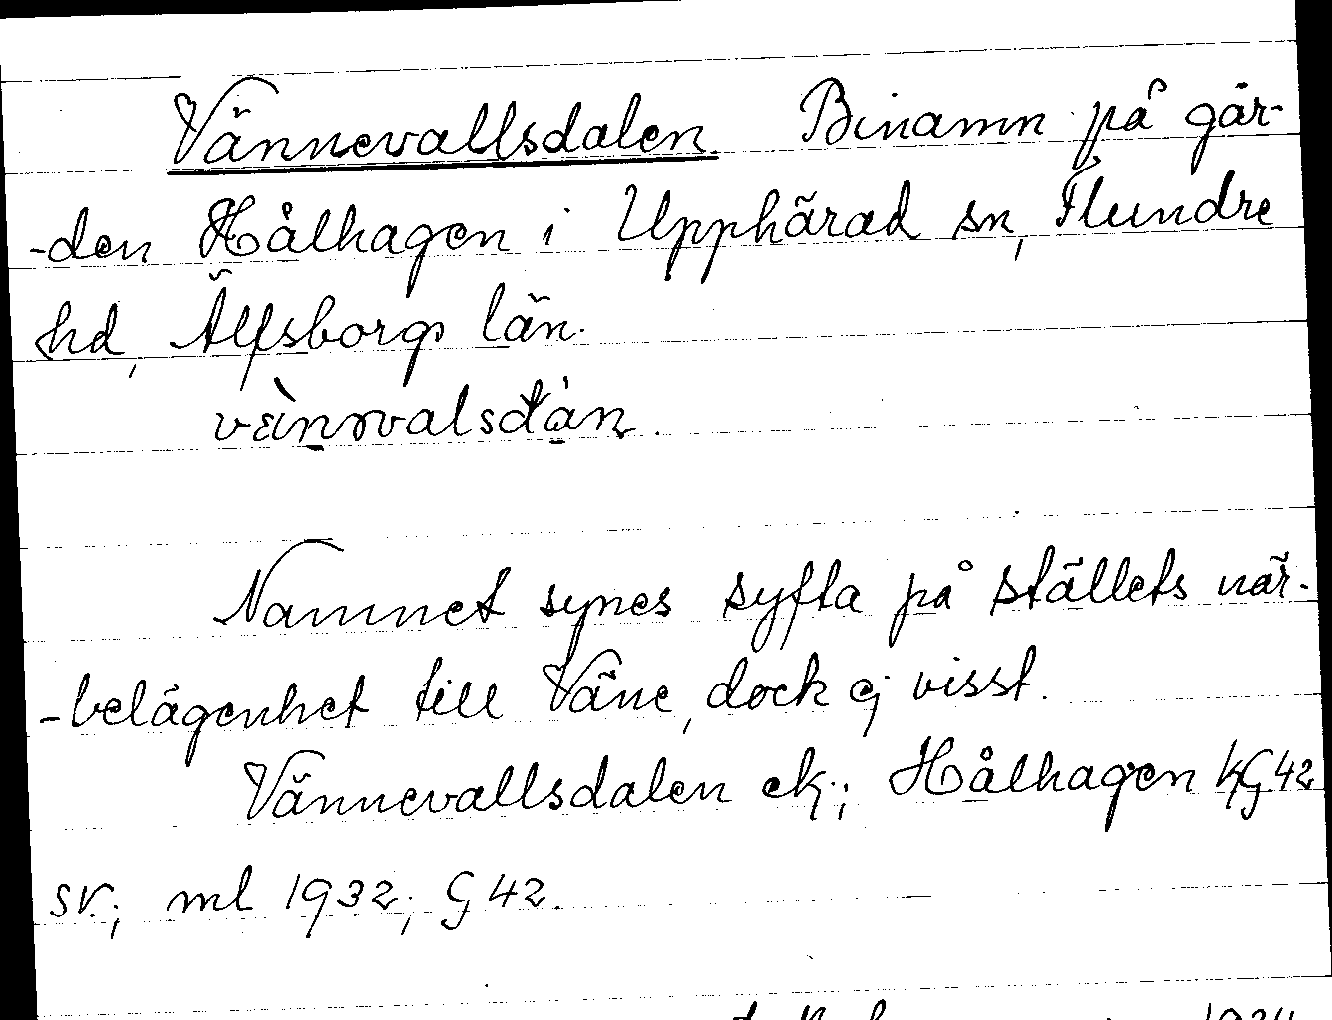 Vännevallsdalen. Binamn på går-
-den Hålhagen i Upphärad sn, Flundre
hd, Älfsborgs län.

Namnet synes syfta på ställets när-
-belägenhet till Väne, dock ej visst.
Vännevallsdalen ek.; Hålhagen kG42
sv.; ml 1932; G42.
1934